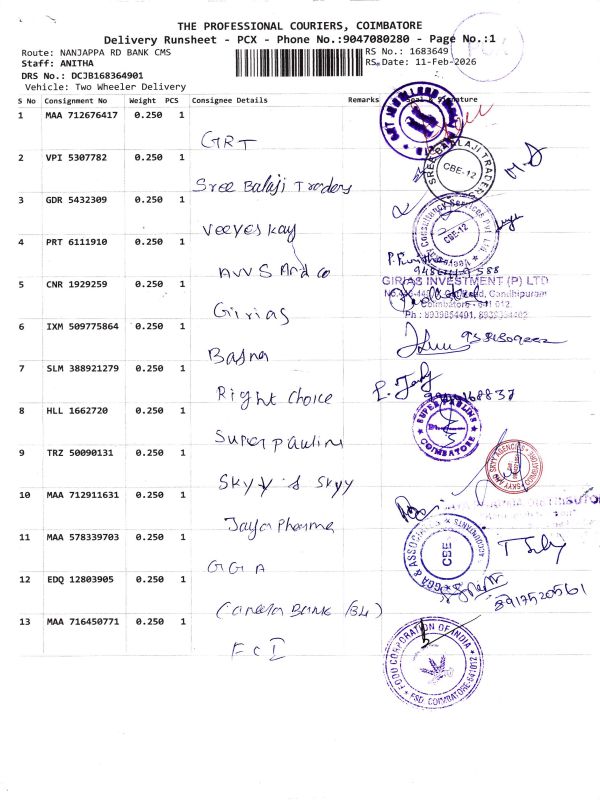 THE PROFESSIONAL COURIERS, COIMBATORE
Delivery Runsheet - PCX - Phone No.:9047080280 - Page No.:1
Route: NANJAPPA RD BANK CMS
RS No.: 1683649
Staff: ANITHA
RS Date: 11-Feb-2026
DRS No.: DCJB168364901
Vehicle: Two Wheeler Delivery
PCX
S No Consignment No Weight PCS Consignee Details Remarks Seal & Signature
1 MAA 712676417 0.250 1
GRT
2 VPI 5307782 0.250 1
Sree Balaji Traders
SREE BALAJI TRADER
CBE-12
3 GDR 5432309 0.250 1
Veeyes kay
Consultancy Services Pvt Ltd
CBE-12
4 PRT 6111910 0.250 1
AVVS And co
5 CNR 1929259 0.250 1
Girias
GIRIAS INVESTMENT (P) LTD
Gandhipuram
Coimbatore - 641 012.
Ph : 8939854401, 8939354402
6 IXM 509775864 0.250 1
7 SLM 388921279 0.250 1
Right Choice
8 HLL 1662720 0.250 1
Super paulins
SUPER PAULINS
COIMBATORE
9 TRZ 50090131 0.250 1
Skyy is Skyy
SKYY AGENCIES
10 MAA 712911631 0.250 1
Jaya Pharma
11 MAA 578339703 0.250 1
GGA
GGA & ASSOCIATES
CBE
ACCOUNTANTS
12 EDQ 12803905 0.250 1
Canara Bank
8917520561
13 MAA 716450771 0.250 1
FCI
FOOD CORPORATION OF INDIA
FSD, COIMBATORE-641012